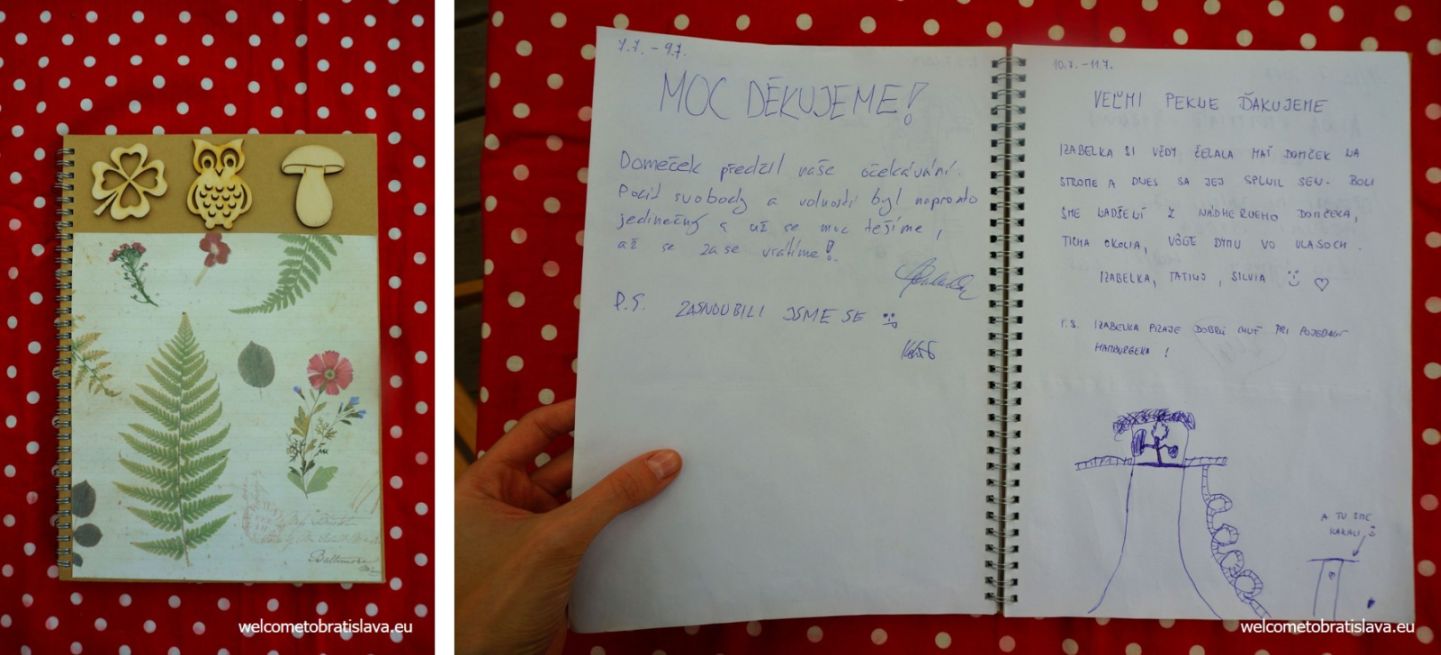 Baltimore
welcometobratislava.eu
7.7. - 9.7.
MOC DĚKUJEME!
Domeček předčil vaše očekávání.
Pocit svobody a volnosti byl naprosto
jedinečný a už se moc těšíme,
až se zase vrátíme!
P.S. ZASNOUBILI JSME SE
10.7. - 11.7.
VEĽMI PEKNE ĎAKUJEME
IZABELKA SI VŽDY ČELALA MAŤ DOMČEK NA
STROME A DNES SA JEJ SPLNIL SEN. BOLI
SME NADŠENÍ Z NÁDHERNEHO DOMČEKA,
TICHA OKOLIA, VÔGE DYMU VO VLASOCH.
IZABELKA, TATINO, SILVIA
P.S. IZABELKA PRAJE DOBRÚ CHUŤ PRI POJEDANÍ
HAMBURGERA !
A TU SME
KAKALI
welcometobratislava.eu